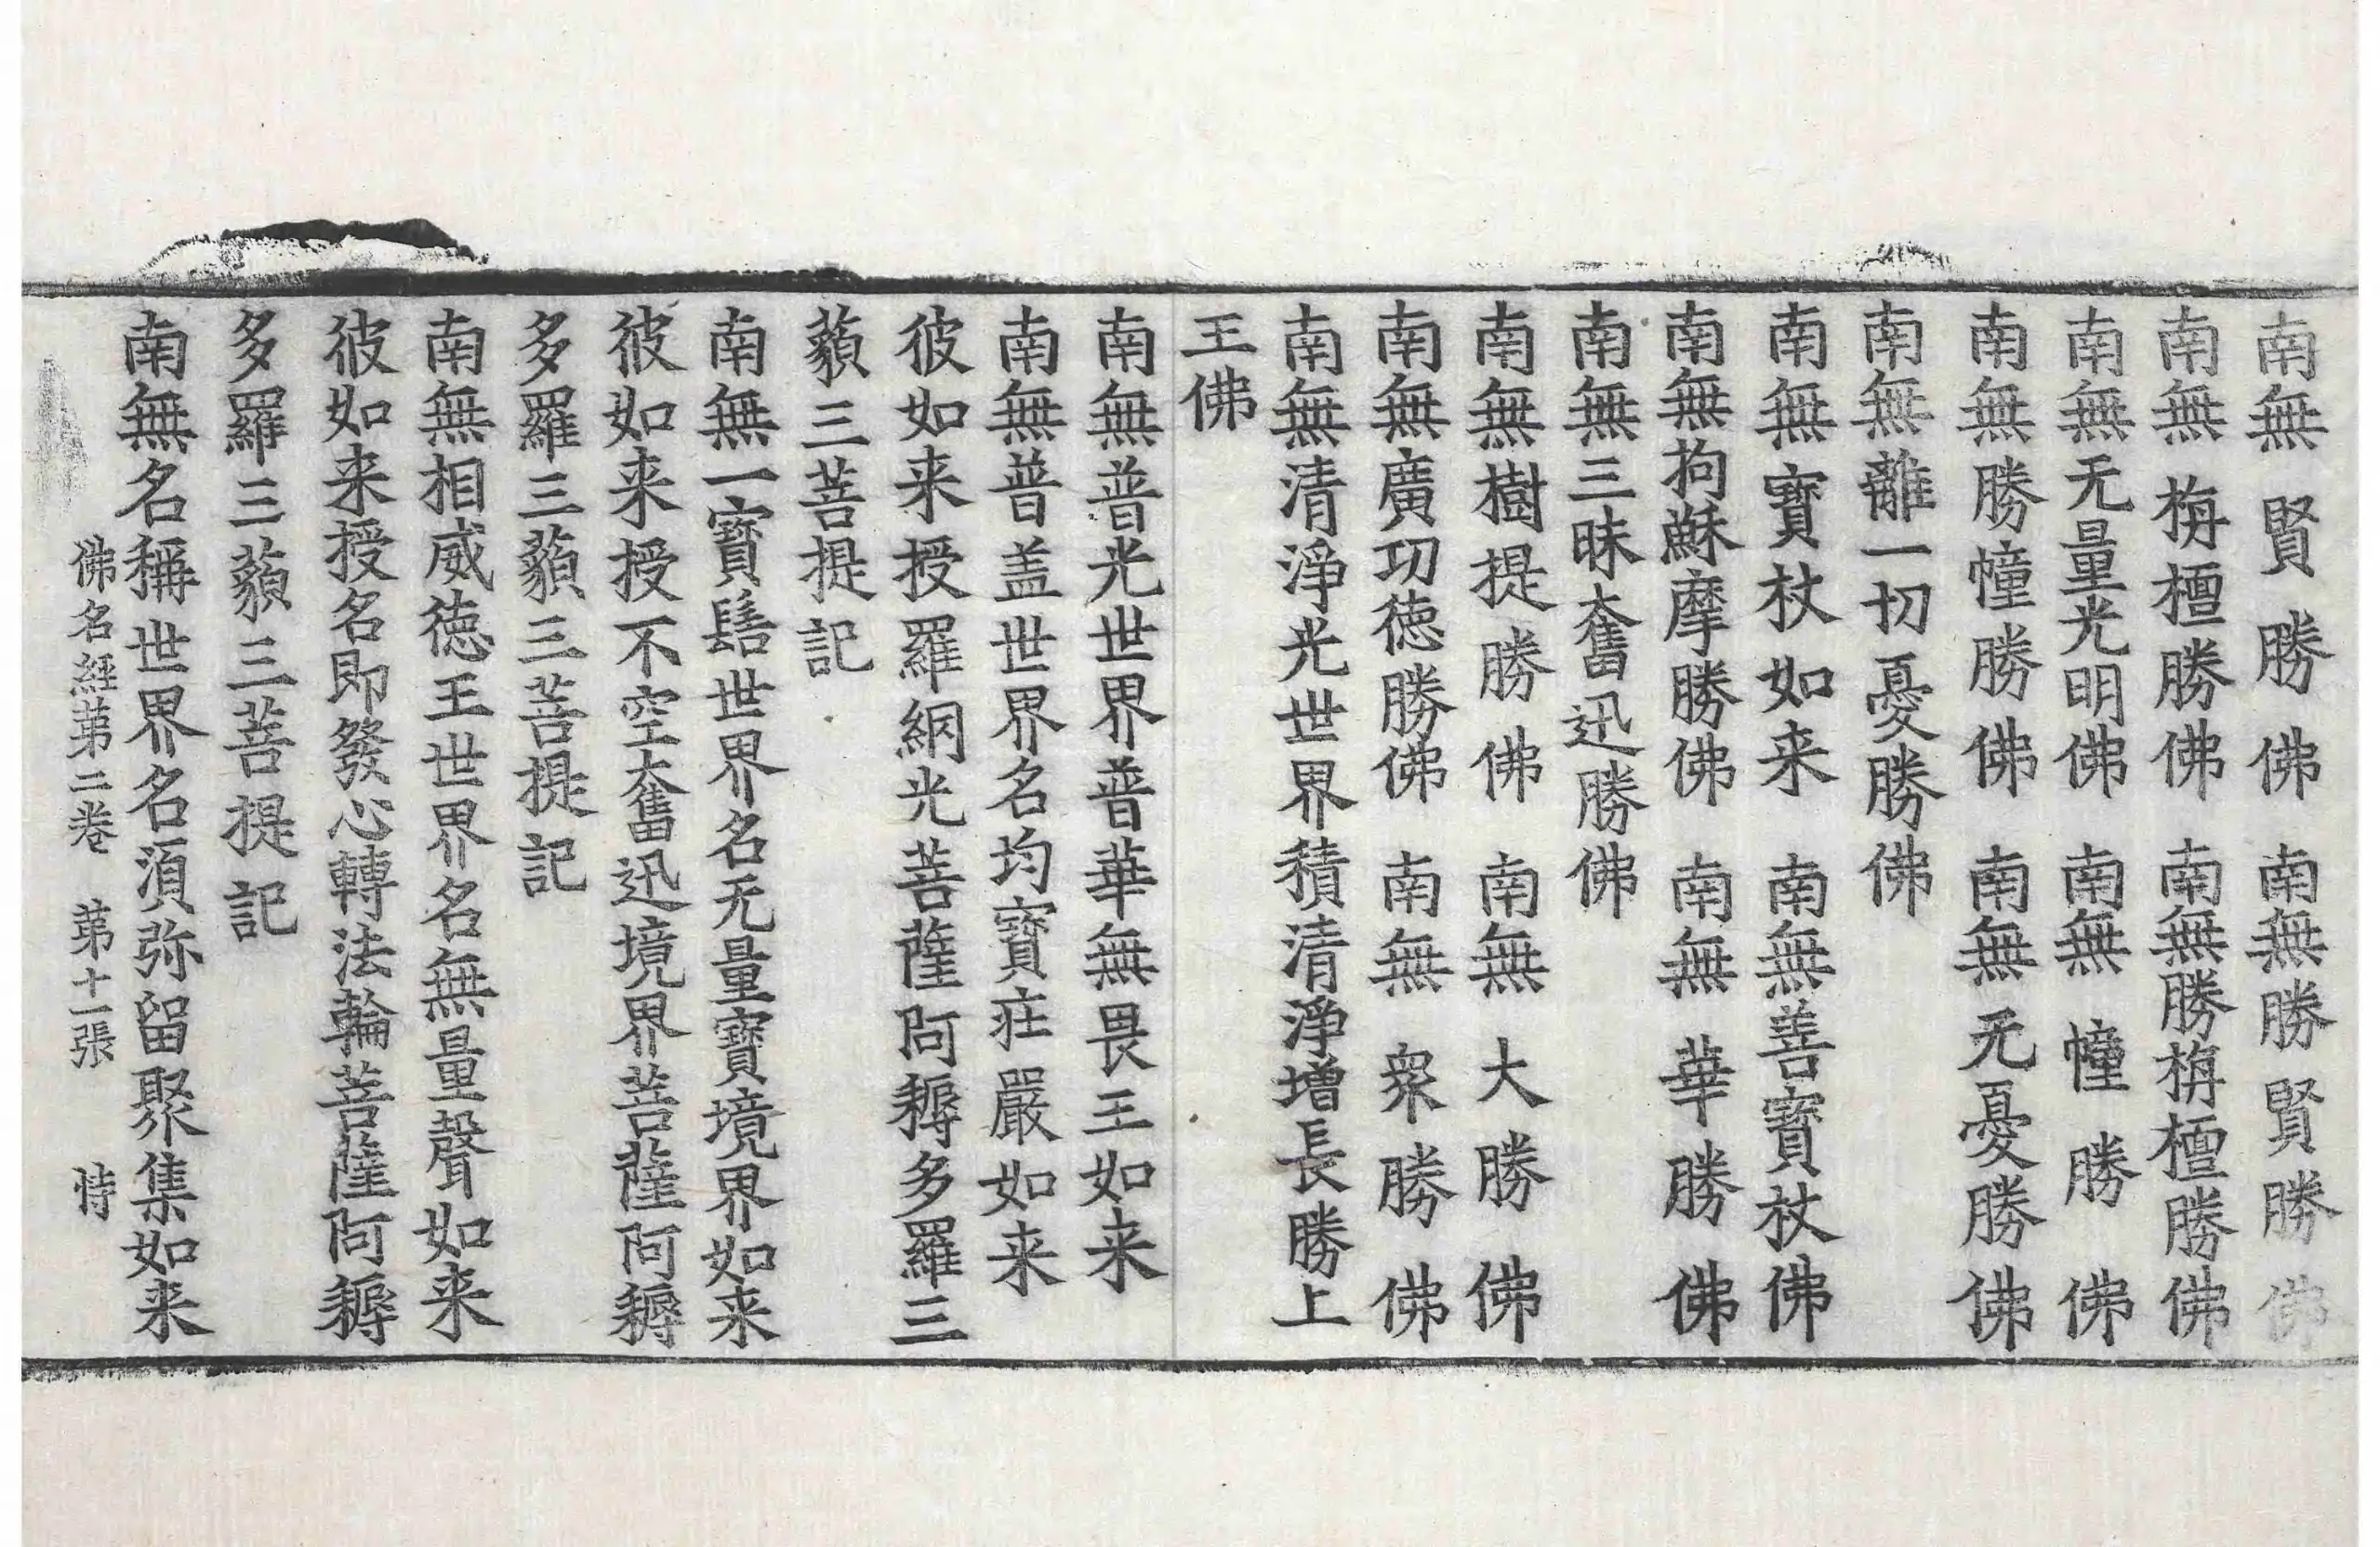 南無賢勝佛　南無勝賢勝佛
南無栴檀勝佛　南無勝栴檀勝佛
南無无量光明佛　南無幢勝佛
南無勝幢勝佛　南無无憂勝佛
南無離一切憂勝佛
南無寶杖如来　南無善寶杖佛
南無拘蘇摩勝佛　南無華勝佛
南無三昧奮迅勝佛
南無樹提勝佛　南無大勝佛
南無廣功徳勝佛　南無衆勝佛
南無清淨光世界積清淨增長勝上
王佛
南無普光世界普華無畏王如来
南無普盖世界名均寶莊嚴如来
彼如来授羅網光菩薩阿耨多羅三
藐三菩提記
南無一寶髻世界名无量寶境界如来
彼如来授不空奮迅境界菩薩阿耨
多羅三藐三菩提記
南無相威徳王世界名無量聲如来
彼如来授名即發心轉法輪菩薩阿耨
多羅三藐三菩提記
南無名稱世界名湏弥留聚集如来
佛名經苐二卷　苐十一張　恃